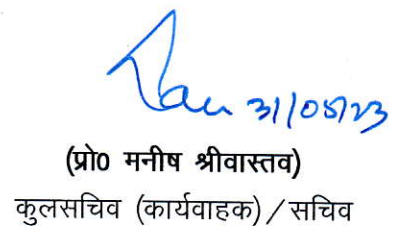 31/05/23
(प्रो0 मनीष श्रीवास्तव)
कुलसचिव (कार्यवाहक) / सचिव